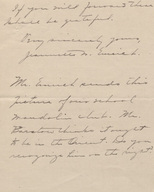 If you will forward these
shall be grateful.
Very sincerely yours
Jeannette A. Emrich
Mr. Emrich sends this
picture of our school
Mandolin Club. Mr.
thinks it ought
to be in the Do you
recognize him on the right